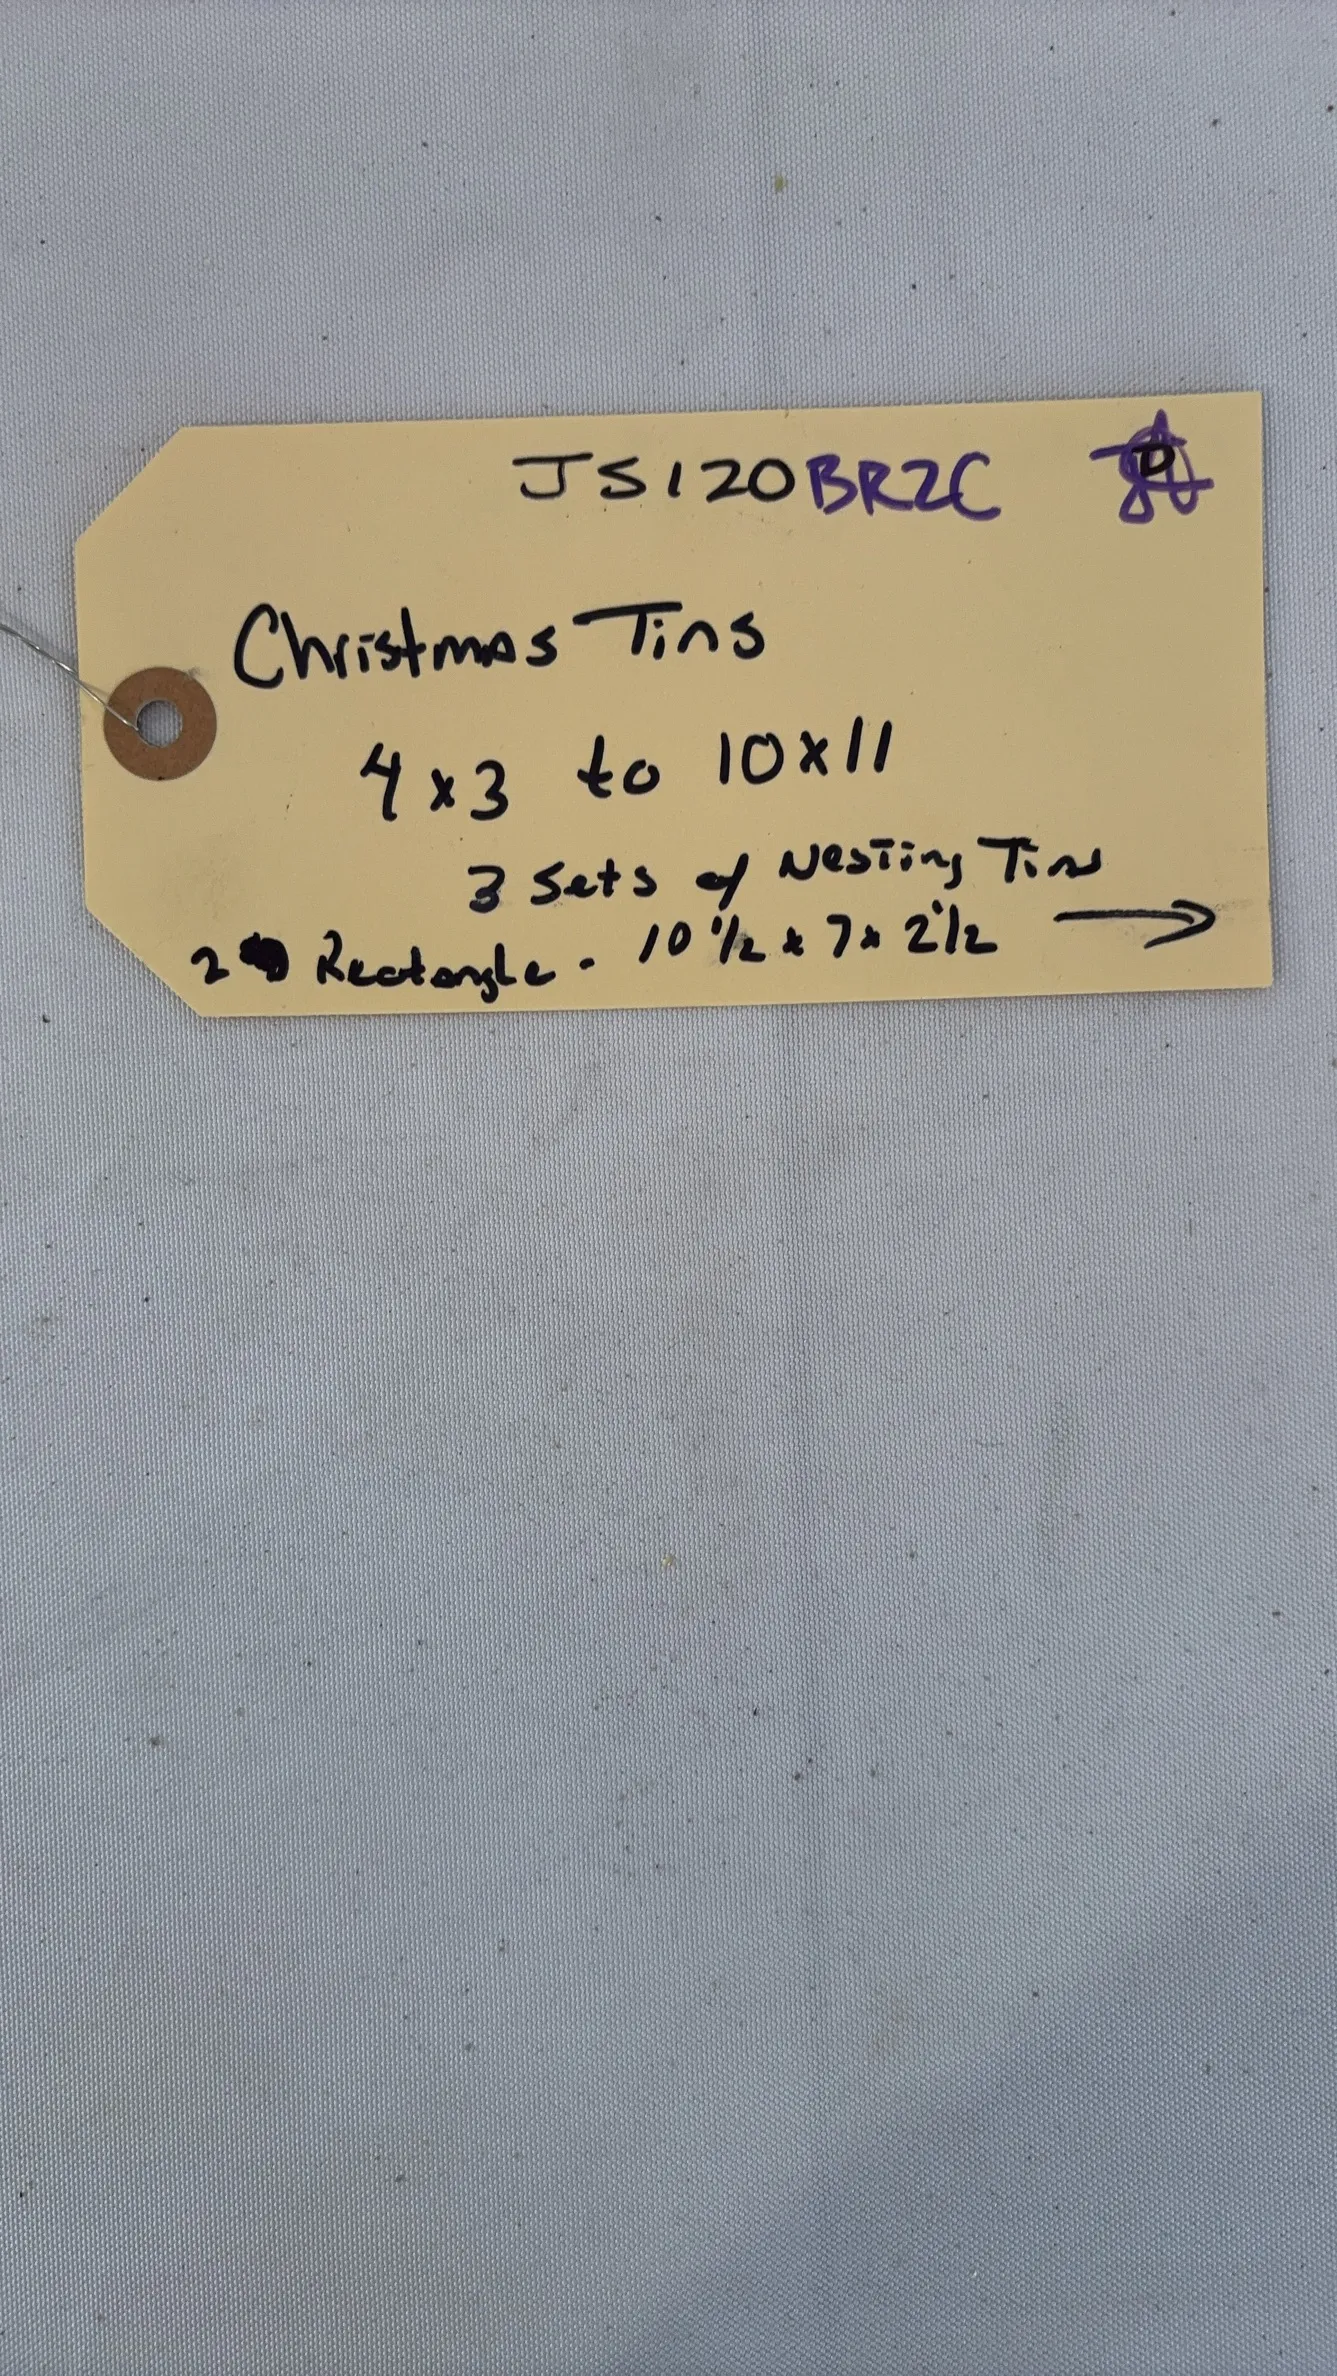 JS120BR2C
Christmas Tins
4x3 to 10x11
3 Sets of Nesting Tins
2 Rectangle - 10 1/2 x 7 x 2 1/2 →